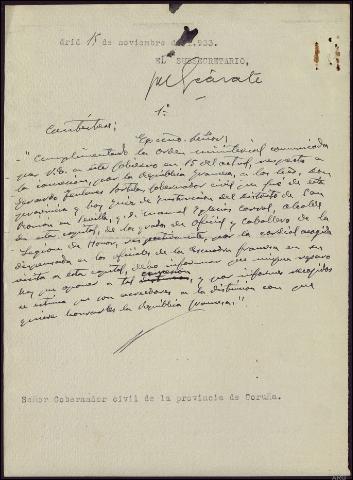 drid 15 de noviembre de 1.933.
EL SUBSECRETARIO,
1º
Contéstese;
Excmo. Señor;
"Cumplimentando la orden ministerial comunicada
por V.E. a este Gobierno en 15 del actual, respecto a
la concesión, por la República francesa, a los Sres. Don
Gerardo Fontanes Portela, Gobernador civil que fué de esta
provincia y hoy Juez de Instrucción del distrito de San
Román en Sevilla, y D. Manuel Iglesias Corral, alcalde
de esta capital, de los grados de Oficial y Caballero de la
Legión de Honor, respectivamente, por la cordial acogida
dispensada a los oficiales de la Escuadra francesa en su
visita a esta capital, debo informar que ningún reparo
hay que oponer a tal concesión, y por informes recogidos
se estima que son acreedores a la distinción con que
quiere honrarles la República francesa."
Señor Gobernador civil de la provincia de Coruña.